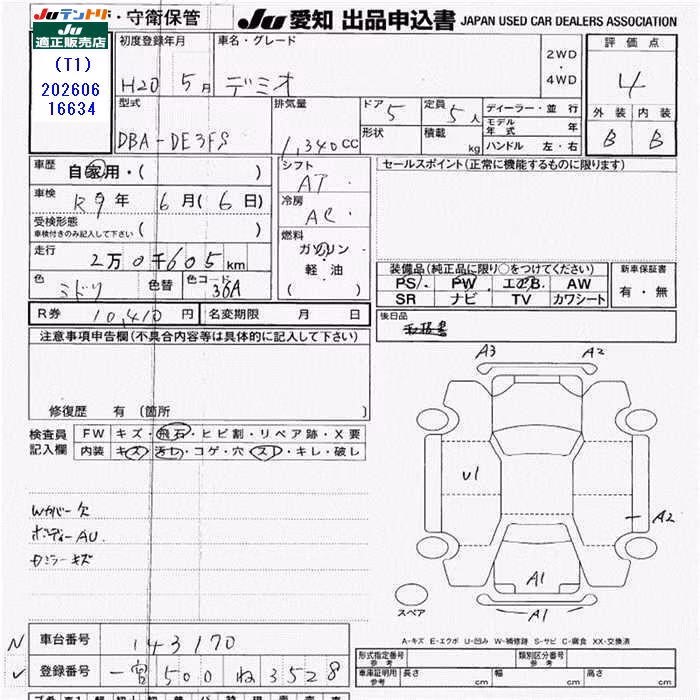 JUテントリ・守衛保管 JU 愛知 出品申込書 JAPAN USED CAR DEALERS ASSOCIATION
JU適正販売店
(T1)
202606
16634
初度登録年月 車名・グレード 評価点
H20 5月 デミオ 2WD・4WD 4
型式 排気量 ドア 5 定員 5人 ディーラー・並行 外装 内装
DBA-DE3FS 1,340cc 形状 積載 kg モデル年式 年 B B
ハンドル 左・右
車歴 自家用・( ) シフト セールスポイント(正常に機能するものに限ります)
AT
車検 R9年 6月(6日) 冷房
受検形態 AC
車検付きのみ記入して下さい ( )
走行 燃料
2万0千605km ガソリン
軽・油
( )
装備品(純正品に限り○をつけてください) 新車保証書
色 ミドリ 色替 色コード 36A PS・PW・エアB・AW 有・無
SR ナビ TV カワシート
R券 10,410円 名変期限 月 日 後日品
注意事項申告欄(不具合内容等は具体的に記入して下さい)
A3 A2
修復歴 有 (箇所 )
検査員記入欄 FW キズ・飛石・ヒビ割・リペア跡・X要
内装 キズ・汚レ・コゲ・穴・スレ・キレ・破レ
U1
Wカバー欠 A2
ボディーAU
Dミラーキズ
A1
スペア A1
A-キズ E-エクボ U-凹み W-補修跡 S-サビ C-腐食 XX-交換済
N 車台番号 143170
形式指定番号 参考 類別区分番号 参考
✓ 登録番号 一宮 500 ね 3528 車庫証明用 参考 長さ cm 幅 cm 高さ cm